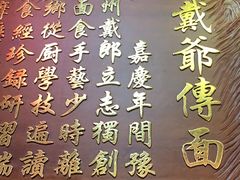 戴爺傳面
嘉慶年間豫
州戴郎立志獨創
面食手藝少時離
鄉從厨學技遍讀
經珍録研習